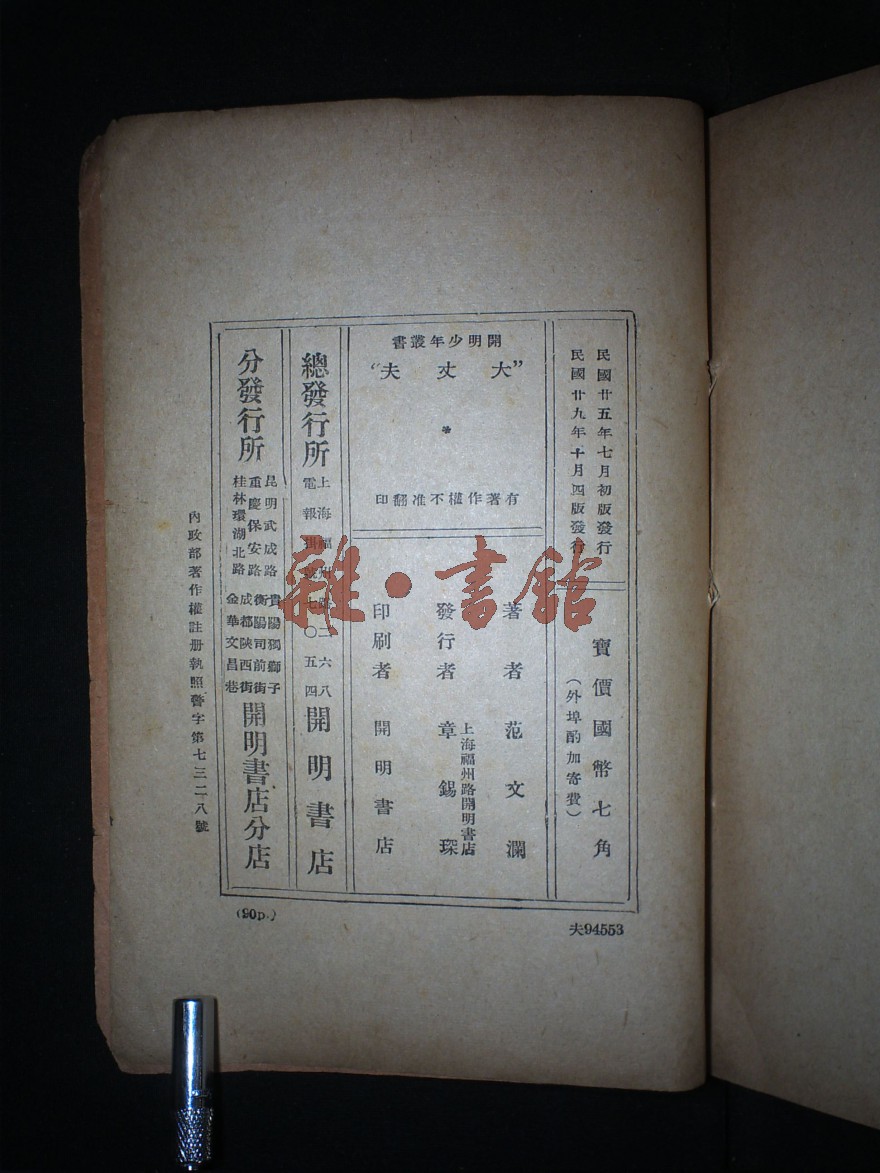 民國廿五年七月初版發行
民國廿九年十月四版發行
寶價國幣七角
（外埠酌加寄費）
開明少年叢書
“大丈夫”
有著作權不准翻印
著者 范文瀾
發行者 章錫琛
上海福州路開明書店
印刷者 開明書店
總發行所
上海福州路二六八
電報掛號七〇五四
開明書店
分發行所
昆明武成路
重慶保安路
桂林環湖北路
貴陽獅子
衡陽司前街
成都陝西街
金華文昌巷
開明書店分店
內政部著作權註册執照警字第七三二八號
(90p.)
夫94553
雜·書館